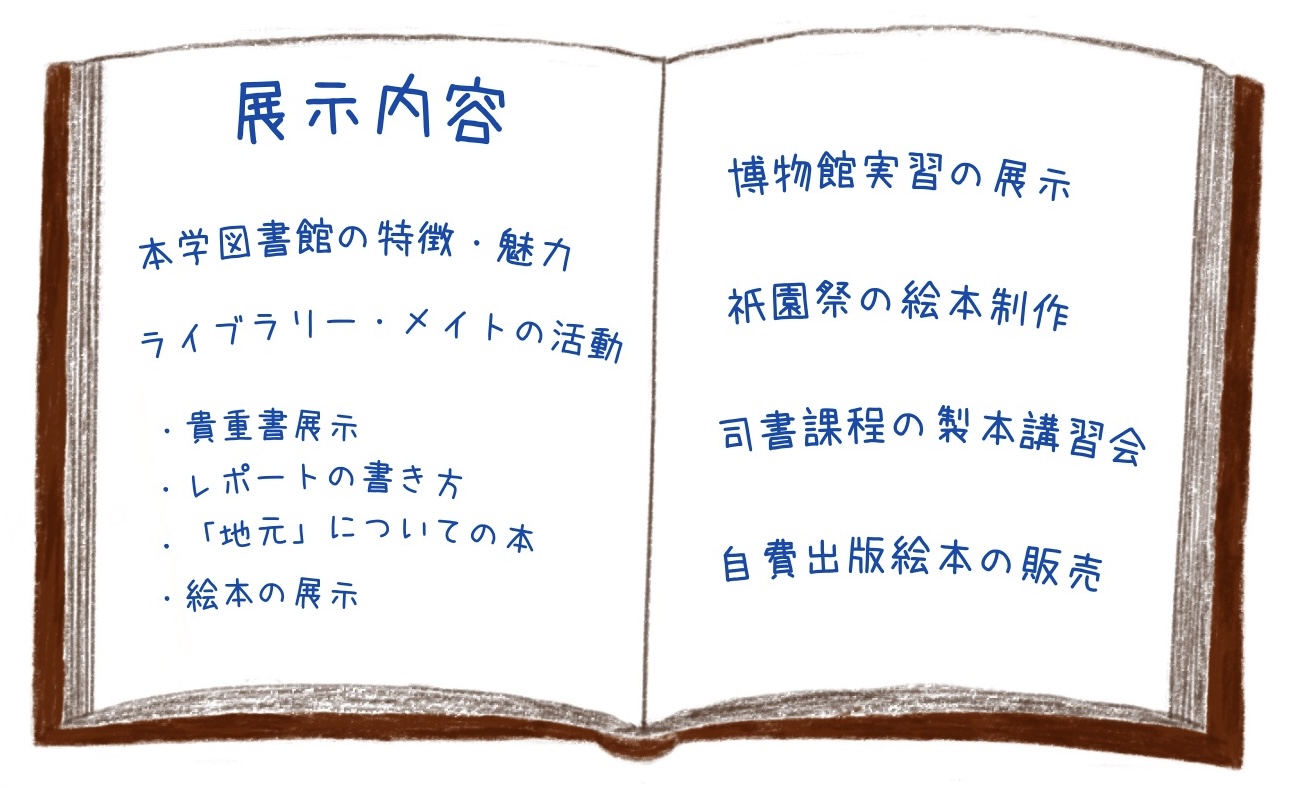 展示内容
本学図書館の特徴・魅力
ライブラリー・メイトの活動
・貴重書展示
・レポートの書き方
・「地元」についての本
・絵本の展示
博物館実習の展示
祇園祭の絵本制作
司書課程の製本講習会
自費出版絵本の販売